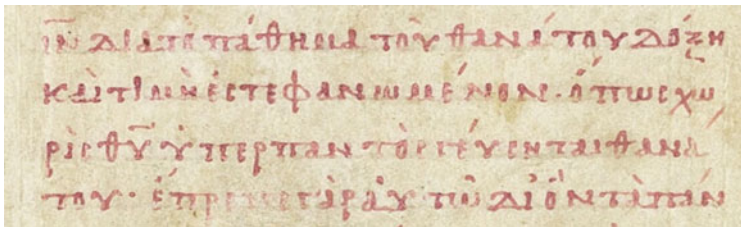 ι̅ν̅ διατὸ πάθημα τοῦ θανάτου δόξη
καὶ τιμῆ ἐστεφανωμένον· ὅπως χω
ρὶς θ̅υ̅ ὑπερπαντὸς γεύσηται θανά
του· ἔπρεπε γὰρ αὐτῶ δι ὃν τὰ πάν